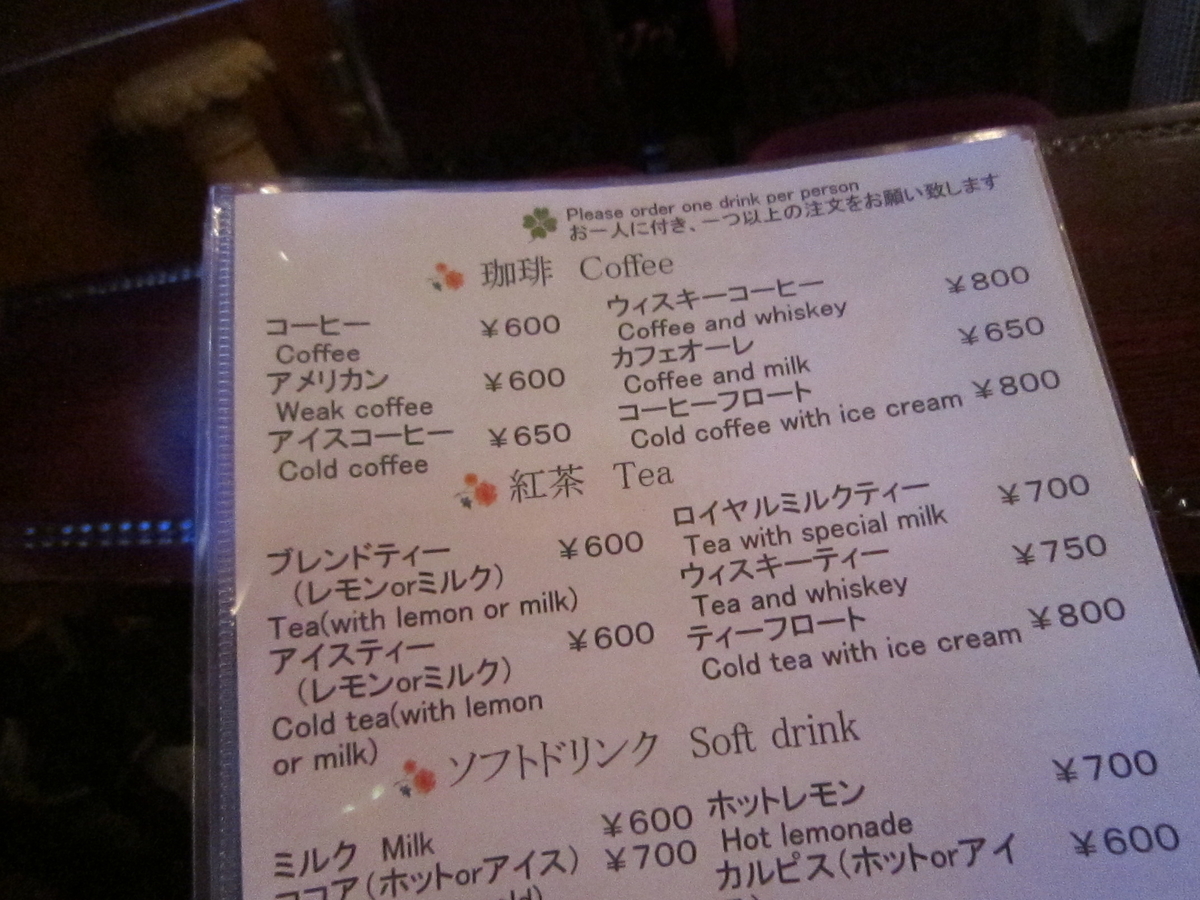 Please order one drink per person
お一人に付き、一つ以上の注文をお願い致します
珈琲 Coffee
コーヒー ￥600
Coffee
アメリカン ￥600
Weak coffee
アイスコーヒー ￥650
Cold coffee
ウィスキーコーヒー ￥800
Coffee and whiskey
カフェオーレ ￥650
Coffee and milk
コーヒーフロート ￥800
Cold coffee with ice cream
紅茶 Tea
ブレンドティー ￥600
（レモンorミルク）
Tea(with lemon or milk)
アイスティー ￥600
（レモンorミルク）
Cold tea(with lemon
or milk)
ロイヤルミルクティー ￥700
Tea with special milk
ウィスキーティー ￥750
Tea and whiskey
ティーフロート ￥800
Cold tea with ice cream
ソフトドリンク Soft drink
ミルク Milk ￥600
ココア（ホットorアイス） ￥700
ホットレモン ￥700
Hot lemonade
カルピス（ホットorアイ ￥600